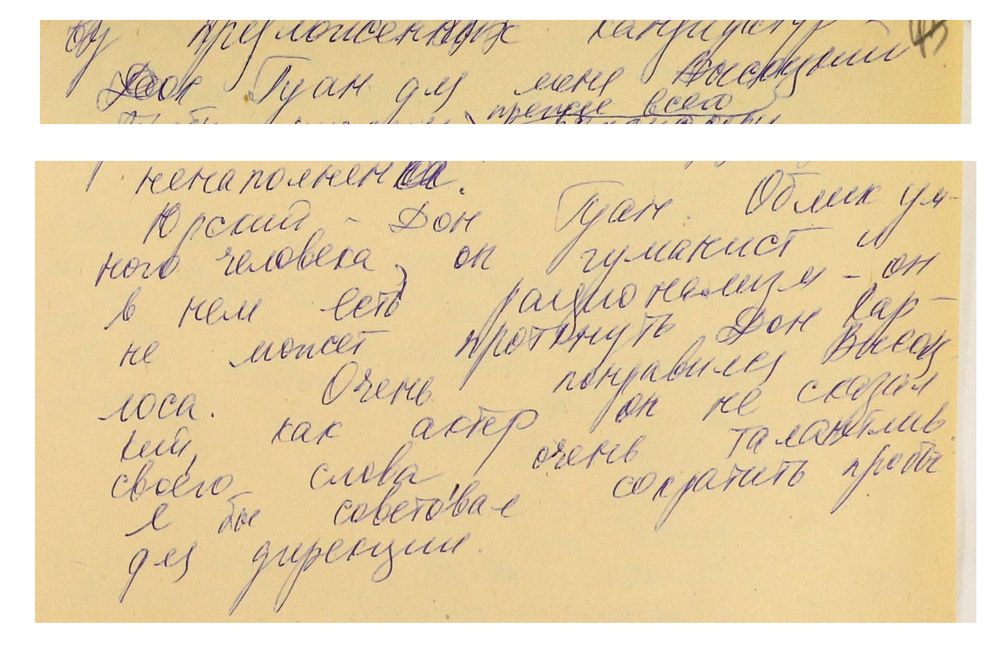 предложенных кандидатур
45
Дон Гуан для меня Высоцкий
прежде всего
ненаполненная.
Юрский - Дон Гуан. Облик ум-
ного человека, он гуманист и
в нем есть рационализм - он
не может проткнуть Дон Кар-
лоса. Очень понравился Высоц
кий, как актер он не сказал
своего слова, очень талантлив
Я бы советовал сократить пробы
для дирекции.